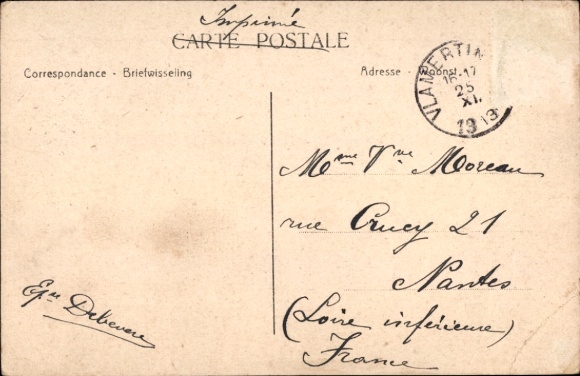 Imprimé
CARTE POSTALE
Correspondance - Briefwisseling
Adresse - Woonst
VLAMERTIN
16-17
25
XI.
1913
Mme Vve Moreau
rue Crucy 21
Nantes
(Loire inférieure)
France
Debevere